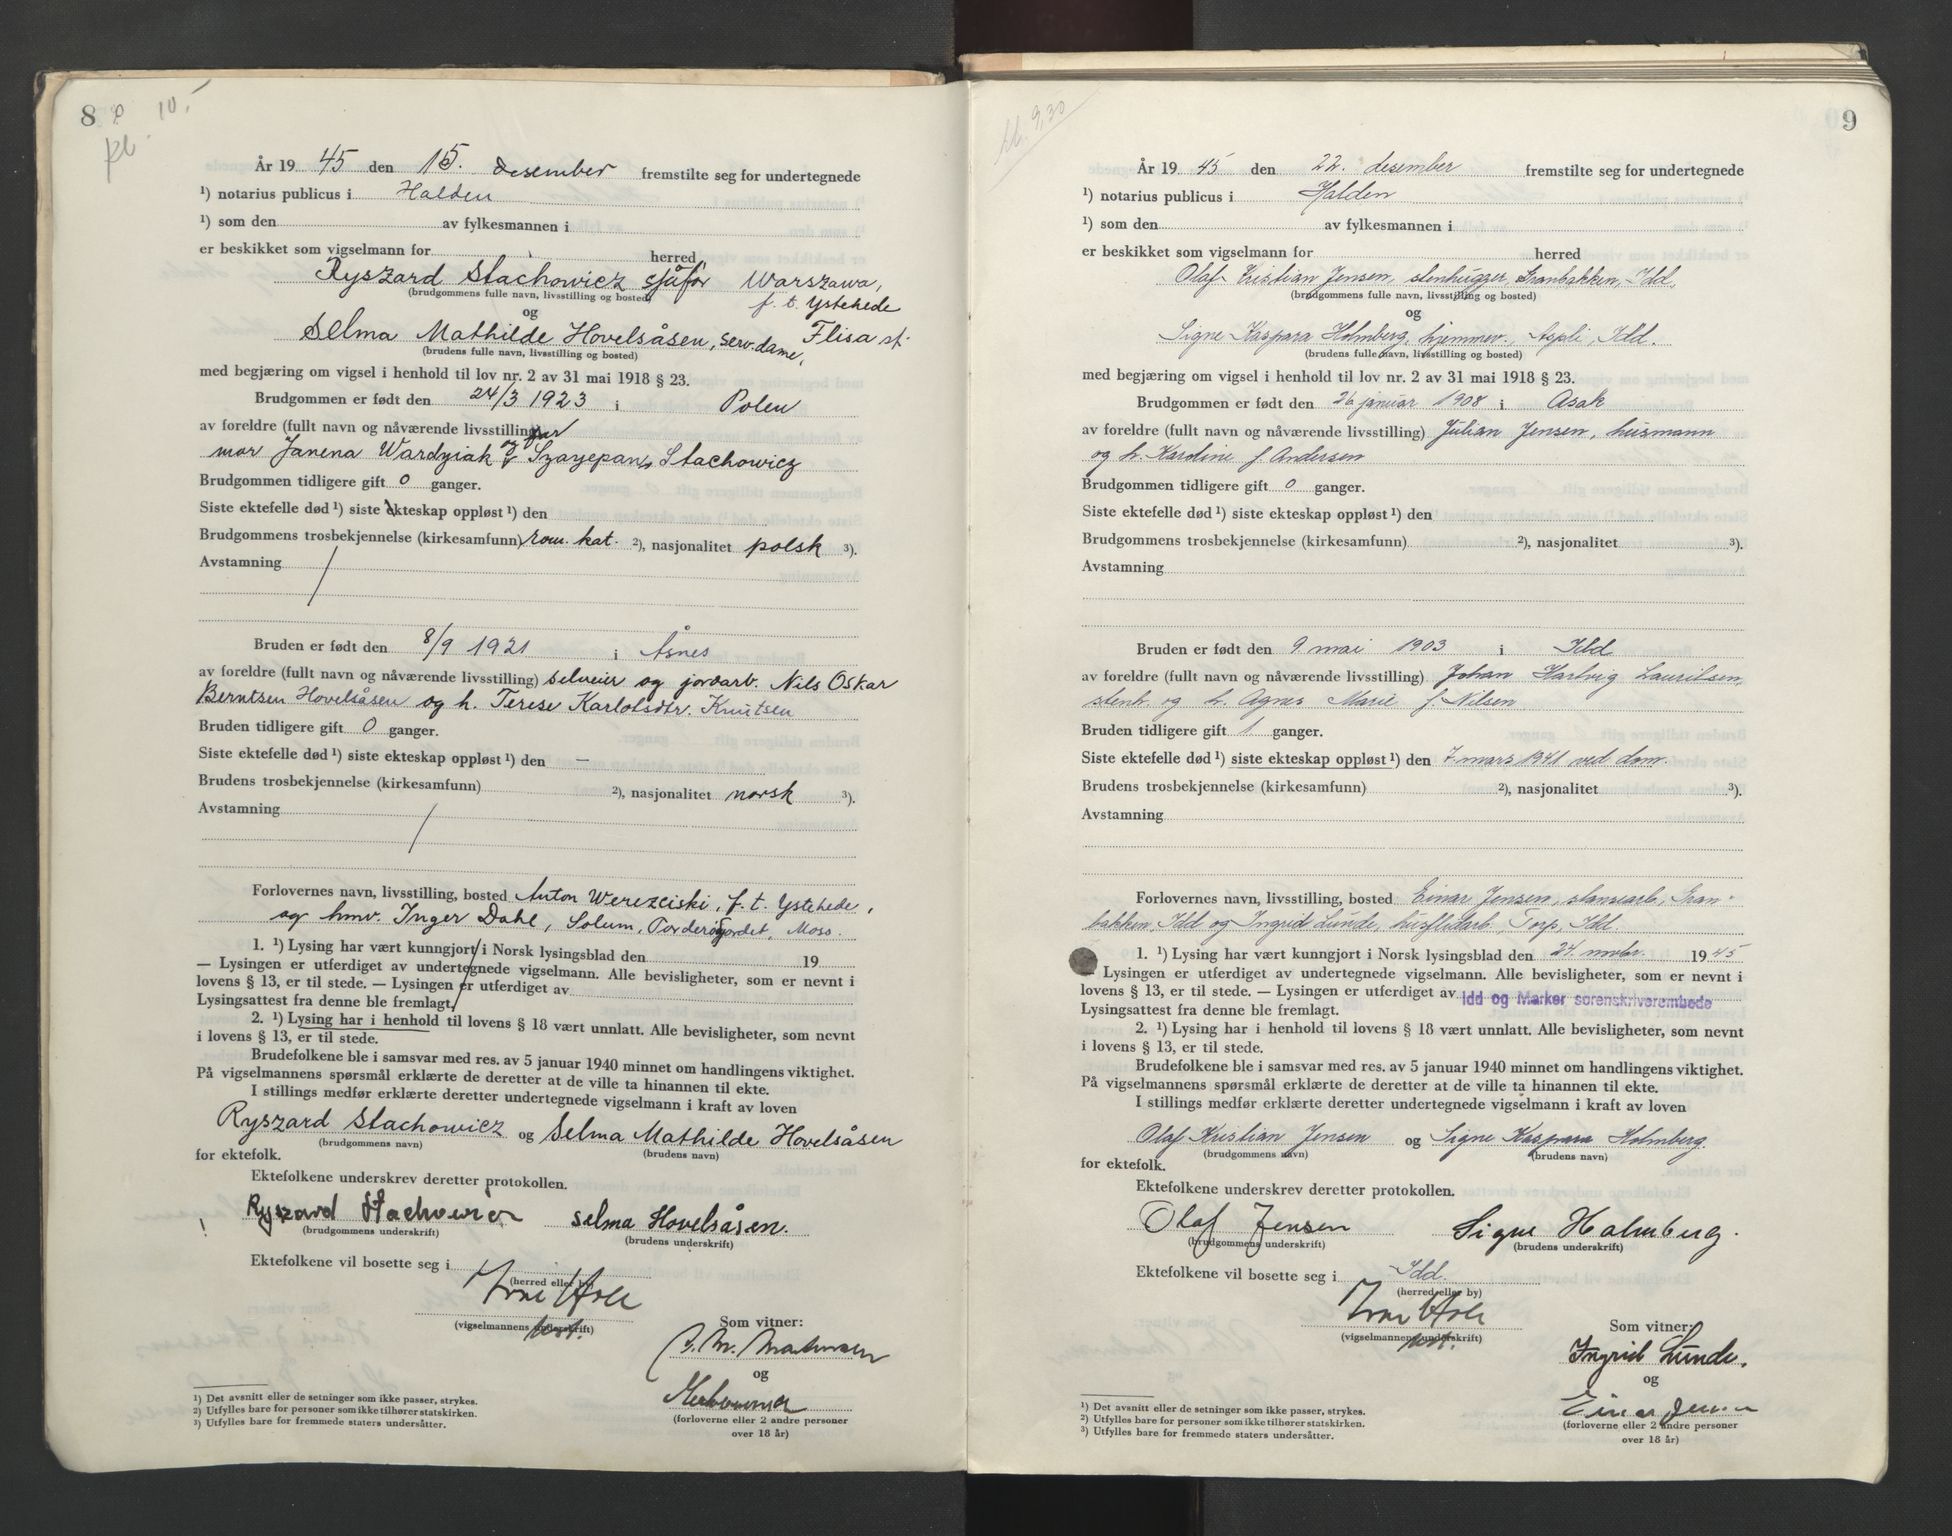 8
kl. 10.-
År 1945 den 15. desember fremstilte seg for undertegnede
¹) notarius publicus i Halden
¹) som den av fylkesmannen i
er beskikket som vigselmann for herred
Ryszard Stachowicz sjåfør Warszawa,
(brudgommens fulle navn, livsstilling og bosted) f. t. Ystehede
og
Selma Mathilde Hovelsåsen, serv.dame, Flisa st.
(brudens fulle navn, livsstilling og bosted)
med begjæring om vigsel i henhold til lov nr. 2 av 31 mai 1918 § 23.
Brudgommen er født den 24/3 1923 i Polen
av foreldre (fullt navn og nåværende livsstilling)
mor Janena Wardyiak og Szayepan Stachowicz
Brudgommen tidligere gift 0 ganger.
Siste ektefelle død ¹) siste ekteskap oppløst ¹) den
Brudgommens trosbekjennelse (kirkesamfunn) rom. kat. ²), nasjonalitet polsk ³).
Avstamning /
Bruden er født den 8/9 1921 i Åsnes
av foreldre (fullt navn og nåværende livsstilling) selveier og jordarb. Nils Oskar
Berntsen Hovelsåsen og h. Terese Karlotsdtr. Knutsen
Bruden tidligere gift 0 ganger.
Siste ektefelle død ¹) siste ekteskap oppløst ¹) den —
Brudens trosbekjennelse (kirkesamfunn) ²), nasjonalitet norsk ³).
Avstamning /
Forlovernes navn, livsstilling, bosted Anton Werezciski, f. t. Ystehede,
og hmv. Inger Dahl, Solum, Moss.
1. ¹) Lysing har vært kunngjort i Norsk lysingsblad den 19
— Lysingen er utferdiget av undertegnede vigselmann. Alle bevisligheter, som er nevnt i
lovens § 13, er til stede. — Lysingen er utferdiget av
Lysingsattest fra denne ble fremlagt.
2. ¹) Lysing har i henhold til lovens § 18 vært unnlatt. Alle bevisligheter, som nevnt
i lovens § 13, er til stede.
Brudefolkene ble i samsvar med res. av 5 januar 1940 minnet om handlingens viktighet.
På vigselmannens spørsmål erklærte de deretter at de ville ta hinannen til ekte.
I stillings medfør erklærte deretter undertegnede vigselmann i kraft av loven
Ryszard Stachowicz og Selma Mathilde Hovelsåsen
(brudgommens navn) (brudens navn)
for ektefolk.
Ektefolkene underskrev deretter protokollen.
Ryszard Stachowicz Selma Hovelsåsen.
(brudgommens underskrift) (brudens underskrift)
Ektefolkene vil bosette seg i
(herred eller by)
(vigselmannens underskrift)
Som vitner:
og
(forloverne eller 2 andre personer
over 18 år)
¹) Det avsnitt eller de setninger som ikke passer, strykes.
²) Utfylles bare for personer som ikke tilhører statskirken.
³) Utfylles bare for fremmede staters undersåtter.
9
kl. 9,30
År 1945 den 22. desember fremstilte seg for undertegnede
¹) notarius publicus i Halden
¹) som den av fylkesmannen i
er beskikket som vigselmann for herred
Olaf Kristian Jensen, stenhugger, Granbakken, Idd,
(brudgommens fulle navn, livsstilling og bosted)
og
Signe Kaspara Holmberg, hjemmev., Aspli, Idd.
(brudens fulle navn, livsstilling og bosted)
med begjæring om vigsel i henhold til lov nr. 2 av 31 mai 1918 § 23.
Brudgommen er født den 26 januar 1908 i Asak
av foreldre (fullt navn og nåværende livsstilling) Julian Jensen, husmann
og h. Karoline f. Andersen
Brudgommen tidligere gift 0 ganger.
Siste ektefelle død ¹) siste ekteskap oppløst ¹) den
Brudgommens trosbekjennelse (kirkesamfunn) ²), nasjonalitet ³).
Avstamning
Bruden er født den 9 mai 1903 i Idd
av foreldre (fullt navn og nåværende livsstilling) Johan Hartvig Lauritsen,
stenh. og h. Agnes Marie f. Nilsen
Bruden tidligere gift 1 ganger.
Siste ektefelle død ¹) siste ekteskap oppløst ¹) den 7 mars 1941 ved dom.
Brudens trosbekjennelse (kirkesamfunn) ²), nasjonalitet ³).
Avstamning
Forlovernes navn, livsstilling, bosted Einar Jensen, stansearb., Gran-
bakken, Idd og Ingrid Lunde, husflidarb., Torp, Idd.
1. ¹) Lysing har vært kunngjort i Norsk lysingsblad den 24. novbr. 1945
— Lysingen er utferdiget av undertegnede vigselmann. Alle bevisligheter, som er nevnt i
lovens § 13, er til stede. — Lysingen er utferdiget av Idd og Marker sorenskriverembede
Lysingsattest fra denne ble fremlagt.
2. ¹) Lysing har i henhold til lovens § 18 vært unnlatt. Alle bevisligheter, som nevnt
i lovens § 13, er til stede.
Brudefolkene ble i samsvar med res. av 5 januar 1940 minnet om handlingens viktighet.
På vigselmannens spørsmål erklærte de deretter at de ville ta hinannen til ekte.
I stillings medfør erklærte deretter undertegnede vigselmann i kraft av loven
Olaf Kristian Jensen og Signe Kaspara Holmberg.
(brudgommens navn) (brudens navn)
for ektefolk.
Ektefolkene underskrev deretter protokollen.
Olaf Jensen Signe Holmberg.
(brudgommens underskrift) (brudens underskrift)
Ektefolkene vil bosette seg i Idd.
(herred eller by)
(vigselmannens underskrift)
Som vitner:
Ingrid Lunde.
og
Einar Jensen
(forloverne eller 2 andre personer
over 18 år)
¹) Det avsnitt eller de setninger som ikke passer, strykes.
²) Utfylles bare for personer som ikke tilhører statskirken.
³) Utfylles bare for fremmede staters undersåtter.